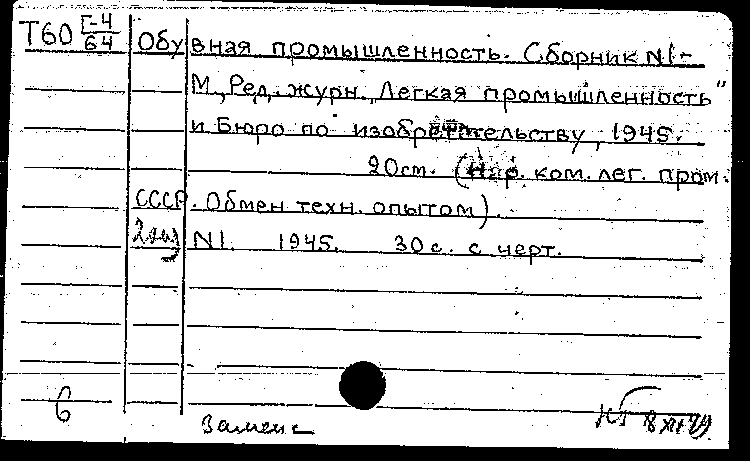 Т60 Г-4/64 Обувная промышленность. Сборник N1-
М., Ред. журн. „Легкая промышленность"
и Бюро по изобретательству, 1945.
20см. (Нар. ком. лег. пром.
СССР. Обмен техн. опытом).
2экз N1. 1945. 30 с. с черт.
6
Замена